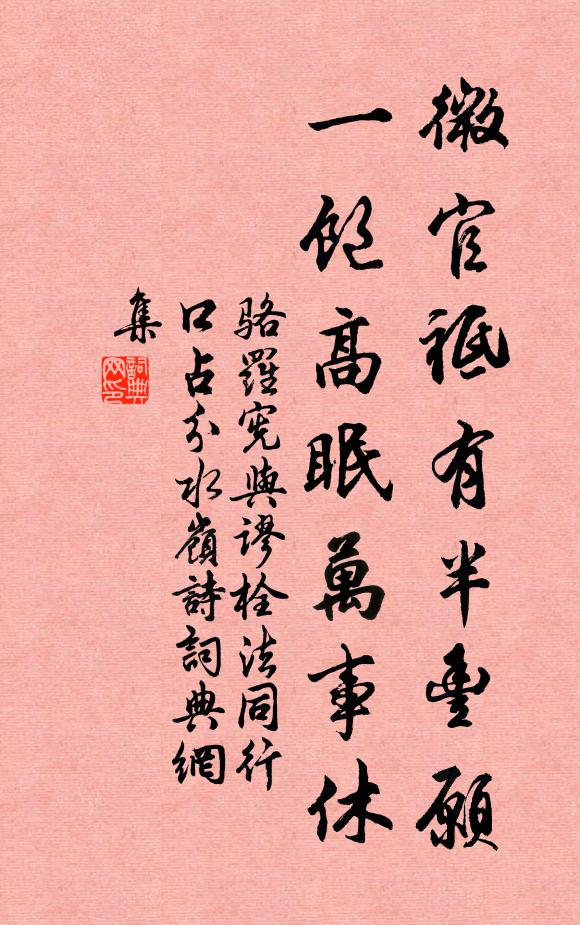 微官祗有半豐願
一飽高眠萬事休
駱羅宪與謬栓法同行
口占分水嶺詩詞典網
集
詞典网印